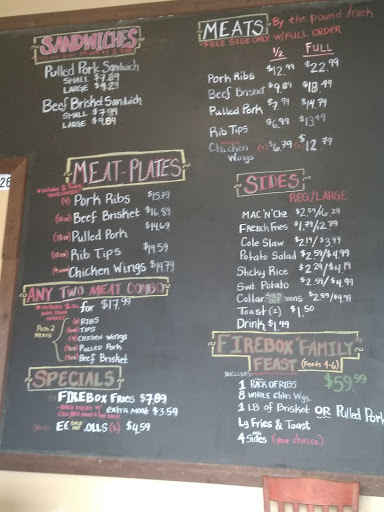 SANDWICHES
Pulled Pork Sandwich
SMALL $7.89
LARGE $9.29
Beef Brisket Sandwich
SMALL $7.99
LARGE $9.89
MEATS By the pound /rack
*FREE SIDE ONLY W/FULL ORDER
1/2 FULL
Pork Ribs $12.99 $22.99
Beef Brisket $9.89 $18.49
Pulled Pork $7.91 $14.79
Rib Tips $6.99 $13.49
Chicken Wings $6.79 $12.79
MEAT-PLATES
Pork Ribs $15.79
Beef Brisket $16.89
Pulled Pork $14.69
Rib Tips $14.59
Chicken Wings $14.79
ANY TWO MEAT COMBO
for $17.99
Pick 2 MEATS
RIBS
TIPS
CHICKEN WINGS
PULLED PORK
Beef Brisket
SPECIALS
FIREBOX FRIES $7.89
extra meat $3.59
SOLD OUT
$4.59
SIDES
REG/LARGE
MAC 'N' CHZ $2.59/$6.29
FRENCH FRIES $1.79/$2.79
Cole Slaw $2.19/$3.99
Potato Salad $2.59/$4.99
Sticky Rice $2.29/$4.19
Swt Potato $2.59/$4.99
Toast (2) $1.50
Drink $1.49
FIREBOX FAMILY
FEAST (Feeds 4-6)
INCLUDES: $59.99
1 RACK OF RIBS
8 WHOLE Chkn Wgs.
1 LB of Brisket OR Pulled Pork
Lg Fries & Toast
4 Sides (your choice)